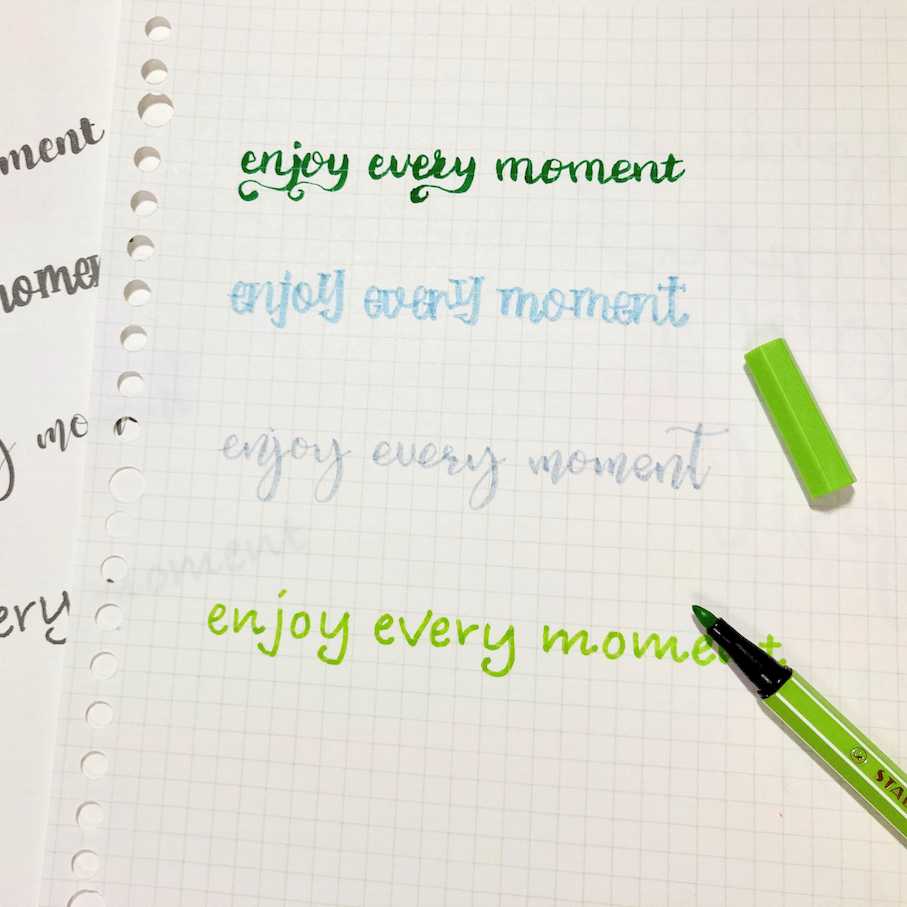 enjoy every moment
enjoy every moment
enjoy every moment
enjoy every moment.
ment
momen
y mo
moment
ery
STA